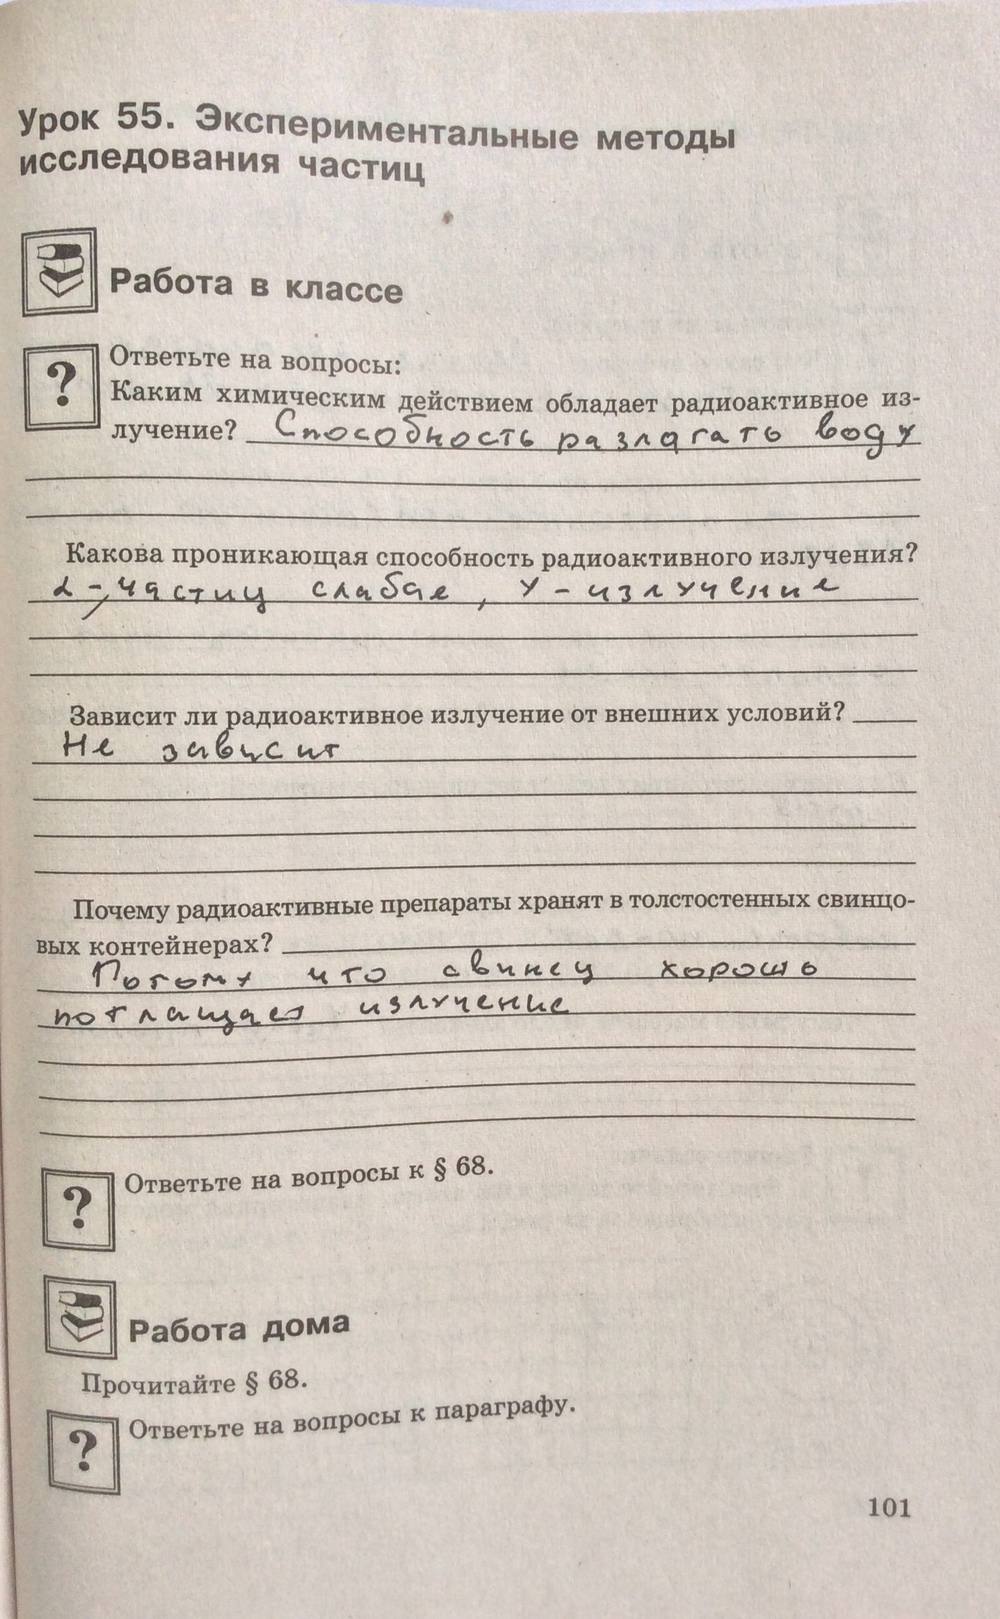 Урок 55. Экспериментальные методы
исследования частиц
Работа в классе
?
Ответьте на вопросы:
Каким химическим действием обладает радиоактивное из-
лучение? Способность разлагать воду
Какова проникающая способность радиоактивного излучения?
α-частиц слабая, γ-излучение
Зависит ли радиоактивное излучение от внешних условий?
Не зависит
Почему радиоактивные препараты хранят в толстостенных свинцо-
вых контейнерах?
Потому что свинец хорошо
поглащает излучение
?
Ответьте на вопросы к § 68.
Работа дома
Прочитайте § 68.
?
Ответьте на вопросы к параграфу.
101